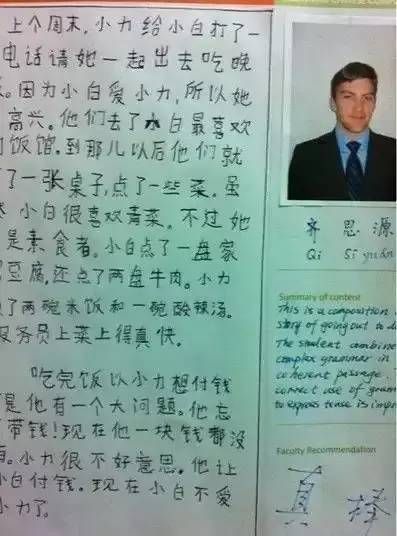 上个周末，小力给小白打了一
电话请她一起出去吃晚
因为小白爱小力，所以她
高兴。他们去了小白最喜欢
饭馆。到那儿以后他们就
了一张桌子，点了一些菜。虽
小白很喜欢青菜。不过她
是素食者。小白点了一盘家
豆腐，还点了两盘牛肉。小力
了两碗米饭和一碗酸辣汤。
服务员上菜上得真快。
吃完饭以小力想付钱
是他有一个大问题。他忘
带钱！现在他一块钱都没
。小力很不好意思。他让
小白付钱。现在小白不爱
小力了。
齐 思 源
Qi Si yuán
Summary of content
This is a composition
story of going out to di
The student combine
complex grammar in
coherent passage.
correct use of gram
to express tense is impr
Faculty Recommendation
真 棒